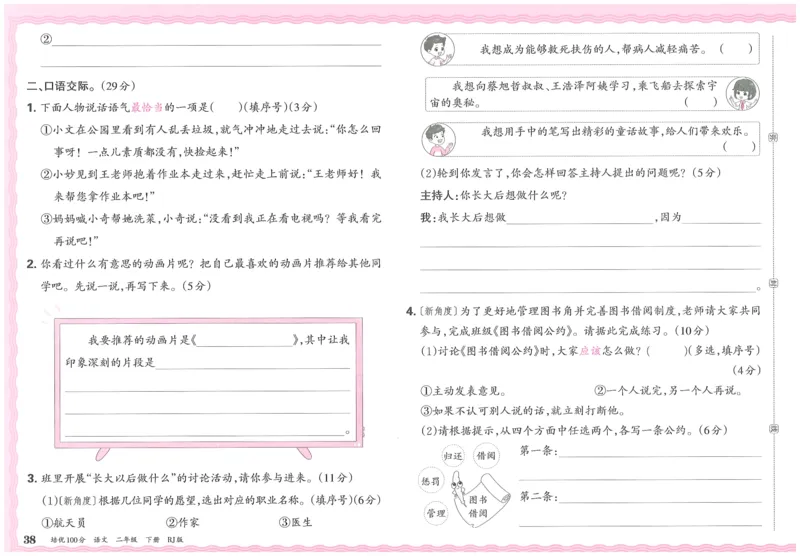 ②
二、口语交际。(29分)
1. 下面人物说话语气最恰当的一项是(　　)(填序号)(3分)
①小文在公园里看到有人乱丢垃圾,就气冲冲地走过去说:“你怎么回
事呀! 一点儿素质都没有,快捡起来!”
②小妙见到王老师抱着作业本走过来,赶忙走上前说:“王老师好! 我
来帮您拿作业本吧!”
③妈妈喊小奇帮她洗菜,小奇说:“没看到我正在看电视吗? 等我看完
再说吧!”
2. 你看过什么有意思的动画片呢? 把自己最喜欢的动画片推荐给其他同
学吧。先说一说,再写下来。(5分)
我要推荐的动画片是《　　　　》,其中让我
印象深刻的片段是
。
3. 班里开展“长大以后做什么”的讨论活动,请你参与进来。(11分)
(1)[新角度]根据几位同学的愿望,选出对应的职业名称。(填序号)(6分)
①航天员　　②作家　　③医生
38 培优100分 语文 二年级 下册 RJ版
我想成为能够救死扶伤的人,帮病人减轻痛苦。(　　)
我想向蔡旭哲叔叔、王浩泽阿姨学习,乘飞船去探索宇
宙的奥秘。(　　)
我想用手中的笔写出精彩的童话故事,给人们带来欢乐。
(　　)
(2)轮到你发言了,你会怎样回答主持人提出的问题呢?(5分)
主持人:你长大后想做什么呢?
我:我长大后想做　　　　,因为
。
4. [新角度]为了更好地管理图书角并完善图书借阅制度,老师请大家共同
参与,完成班级《图书借阅公约》。请据此完成练习。(10分)
(1)讨论《图书借阅公约》时,大家应该怎么做?(　　)(多选,填序号)
(4分)
①主动发表意见。　　②一个人说完,另一个人再说。
③如果不认可别人说的话,就立刻打断他。
(2)请根据提示,从四个方面中任选两个,各写一条公约。(6分)
归还 借阅
惩罚
管理
图书
借阅
第一条:
第二条: